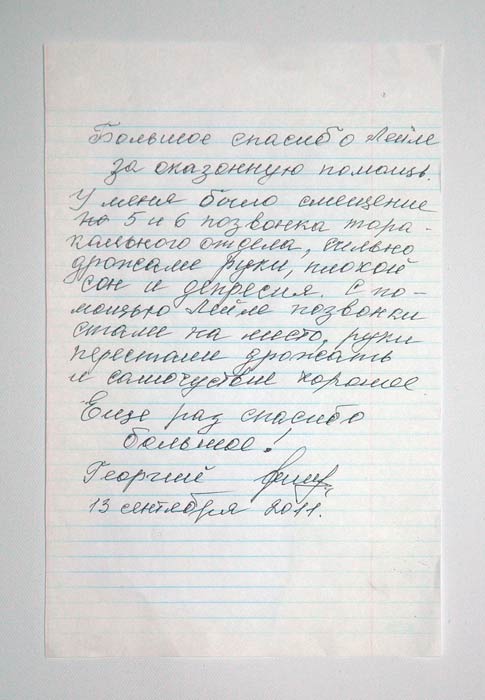 Большое спасибо Лейле
за оказонную помощь.
У меня было смещение
на 5 и 6 позвонка тора-
кального отдела, сильно
дрожали руки, плохой
сон и депресия. С по-
мощью Лейле позвонки
стали на место, руки
перестали дрожать
и самочуствие хорошое
Еще раз спасибо
большое!
Георгий
13 сентября 2011.